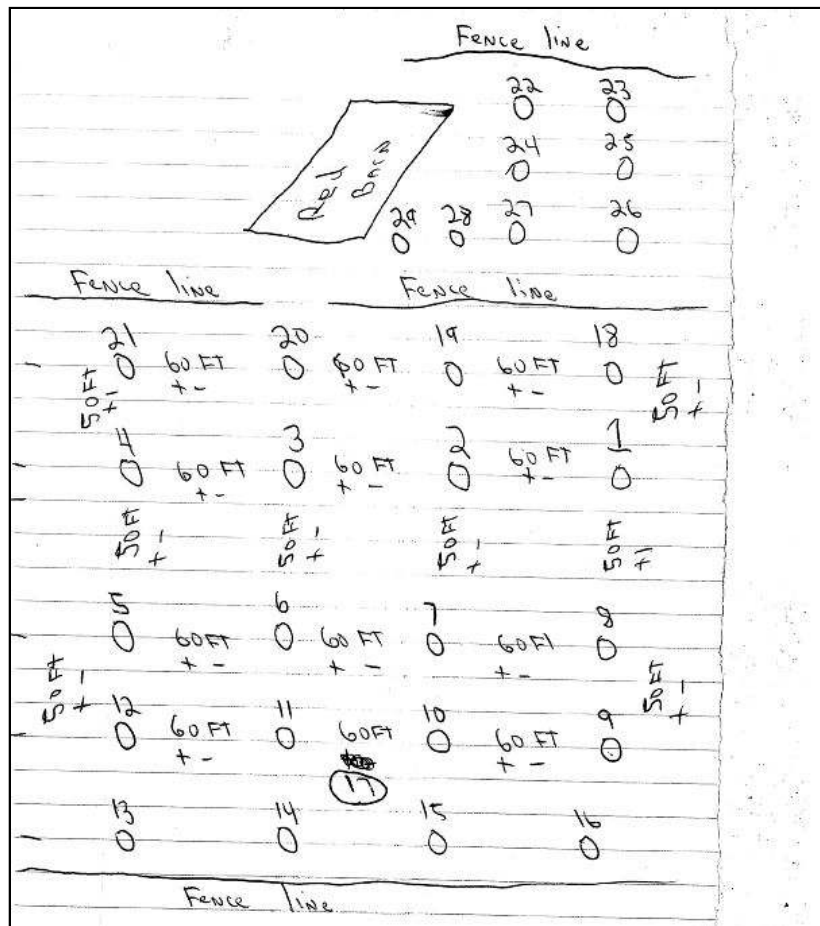 Fence line
22 23
24 25
Red
Barn
29 28 27 26
Fence line Fence line
21 20 19 18
60 FT 60 FT 60 FT
+ - + - + -
50 FT 50 FT
+ - + -
4 3 2 1
60 FT 60 FT 60 FT
+ - + - + -
50 FT 50 FT 50 FT 50 FT
+ - + - + - + -
5 6 7 8
60 FT 60 FT 60 FT
+ - + - + -
50 FT 50 FT
+ - + -
12 11 10 9
60 FT 60 FT 60 FT
+ - + -
17
13 14 15 16
Fence line